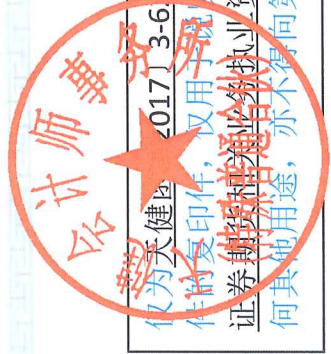 会计师事务所
(特殊普通合伙)
仅为天健函 2017〕3-6
件的复印件，仅用于说
证券期货相关业务执业资
何其他用途，亦不得向第